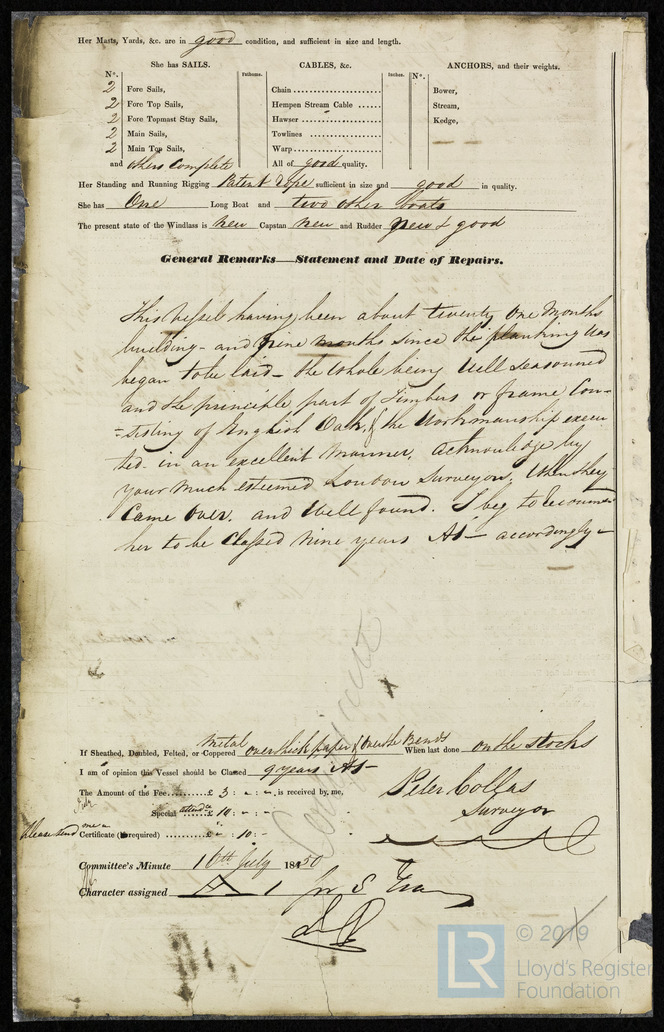 Her Masts, Yards, &c. are in good condition, and sufficient in size and length.
She has SAILS.
CABLES, &c.
ANCHORS, and their weights.
N°.
Fathoms.
Inches.
N°.
2 Fore Sails,
Chain
Bower,
2 Fore Top Sails,
Hempen Stream Cable
Stream,
2 Fore Topmast Stay Sails,
Hawser
Kedge,
2 Main Sails,
Towlines
2 Main Top Sails,
Warp
and others Complete
All of good quality.
Her Standing and Running Rigging Patent Rope sufficient in size and good in quality.
She has One Long Boat and two other boats
The present state of the Windlass is new Capstan new and Rudder new & good
General Remarks—Statement and Date of Repairs.
This Vessel having been about twenty One Months
building - and Nine months since the planking was
began to be laid - the Whole being Well Seasoned
and the principle part of Timbers or frame Con-
-sisting of English Oak, & the Workmanship execu
ted in an excellent Manner, acknowledge by
your Much esteemed London Surveyors, When they
Came Over. and Well found. I beg to recomm
her to be Classed Nine years A1 - accordingly -
If Sheathed, Doubled, Felted, or Coppered Metal over thick paper & over the Bends When last done on the Stocks
I am of opinion this Vessel should be Classed 9 years A1
The Amount of the Fee £ 3 : - : - is received by me,
Peter Collas
Special attendce £ 10 : - : -
Surveyor
Please send me Certificate (if required) £ - : 10 : -
Committee's Minute 16th July 1850
Character assigned A 1
© 2019
LR
Lloyd's Register
Foundation